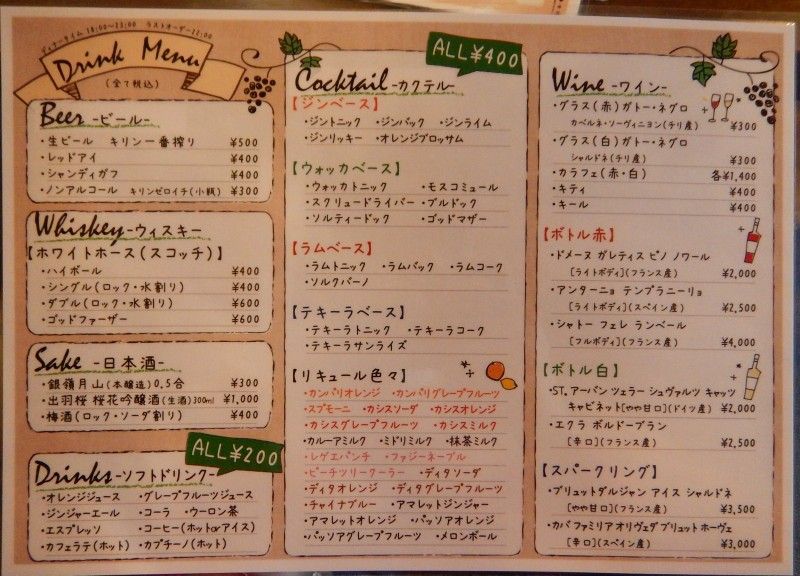 ディナータイム 18:00〜23:00 ラストオーダー22:00
Drink Menu
(全て税込)
Beer -ビール-
・生ビール キリン一番搾り ¥500
・レッドアイ ¥400
・シャンディガフ ¥400
・ノンアルコール キリンゼロイチ(小瓶) ¥300
Whiskey-ウィスキー
【ホワイトホース(スコッチ)】
・ハイボール ¥400
・シングル(ロック・水割り) ¥400
・ダブル(ロック・水割り) ¥600
・ゴッドファーザー ¥600
Sake -日本酒-
・銀嶺月山(本醸造)0.5合 ¥300
・出羽桜 桜花吟醸酒(生酒)300ml ¥1,000
・梅酒(ロック・ソーダ割り) ¥400
ALL¥200
Drinks-ソフトドリンク-
・オレンジジュース ・グレープフルーツジュース
・ジンジャーエール ・コーラ ・ウーロン茶
・エスプレッソ ・コーヒー(hotorアイス)
・カフェラテ(ホット) ・カプチーノ(ホット)
ALL¥400
Cocktail-カクテル-
【ジンベース】
・ジントニック ・ジンバック ・ジンライム
・ジンリッキー ・オレンジブロッサム
【ウォッカベース】
・ウォッカトニック ・モスコミュール
・スクリュードライバー・ブルドック
・ソルティードック ・ゴッドマザー
【ラムベース】
・ラムトニック ・ラムバック ・ラムコーク
・ソルクバーノ
【テキーラベース】
・テキーラトニック ・テキーラコーク
・テキーラサンライズ
【リキュール色々】
・カンパリオレンジ ・カンパリグレープフルーツ
・スプモーニ ・カシスソーダ ・カシスオレンジ
・カシスグレープフルーツ ・カシスミルク
・カルーアミルク ・ミドリミルク ・抹茶ミルク
・レゲエパンチ ・ファジーネーブル
・ピーチツリークーラー ・ディタソーダ
・ディタオレンジ ・ディタグレープフルーツ
・チャイナブルー ・アマレットジンジャー
・アマレットオレンジ ・パッソアオレンジ
・パッソアグレープフルーツ ・メロンボール
Wine -ワイン-
・グラス(赤)ガトー・ネグロ
カベルネ・ソーヴィニヨン(チリ産) ¥300
・グラス(白)ガトー・ネグロ
シャルドネ(チリ産) ¥300
・カラフェ(赤・白) 各¥1,400
・キティ ¥400
・キール ¥400
【ボトル赤】
・ドメーヌ ガレティス ピノ ノワール
[ライトボディ](フランス産) ¥2,000
・アンターニョ テンプラニーリョ
[ライトボディ](スペイン産) ¥2,500
・シャトー フェレ ランベール
[フルボディ](フランス産) ¥4,000
【ボトル白】
・ST.アーバン ツェラー シュヴァルツ キャッツ
キャビネット[やや甘口](ドイツ産) ¥2,000
・エクラ ボルドーブラン
[辛口](フランス産) ¥2,500
【スパークリング】
・ブリュットダルジャン アイス シャルドネ
[やや甘口](フランス産) ¥3,500
・カバ ファミリア オリヴェダ ブリュット ホーヴェ
[辛口](スペイン産) ¥3,000